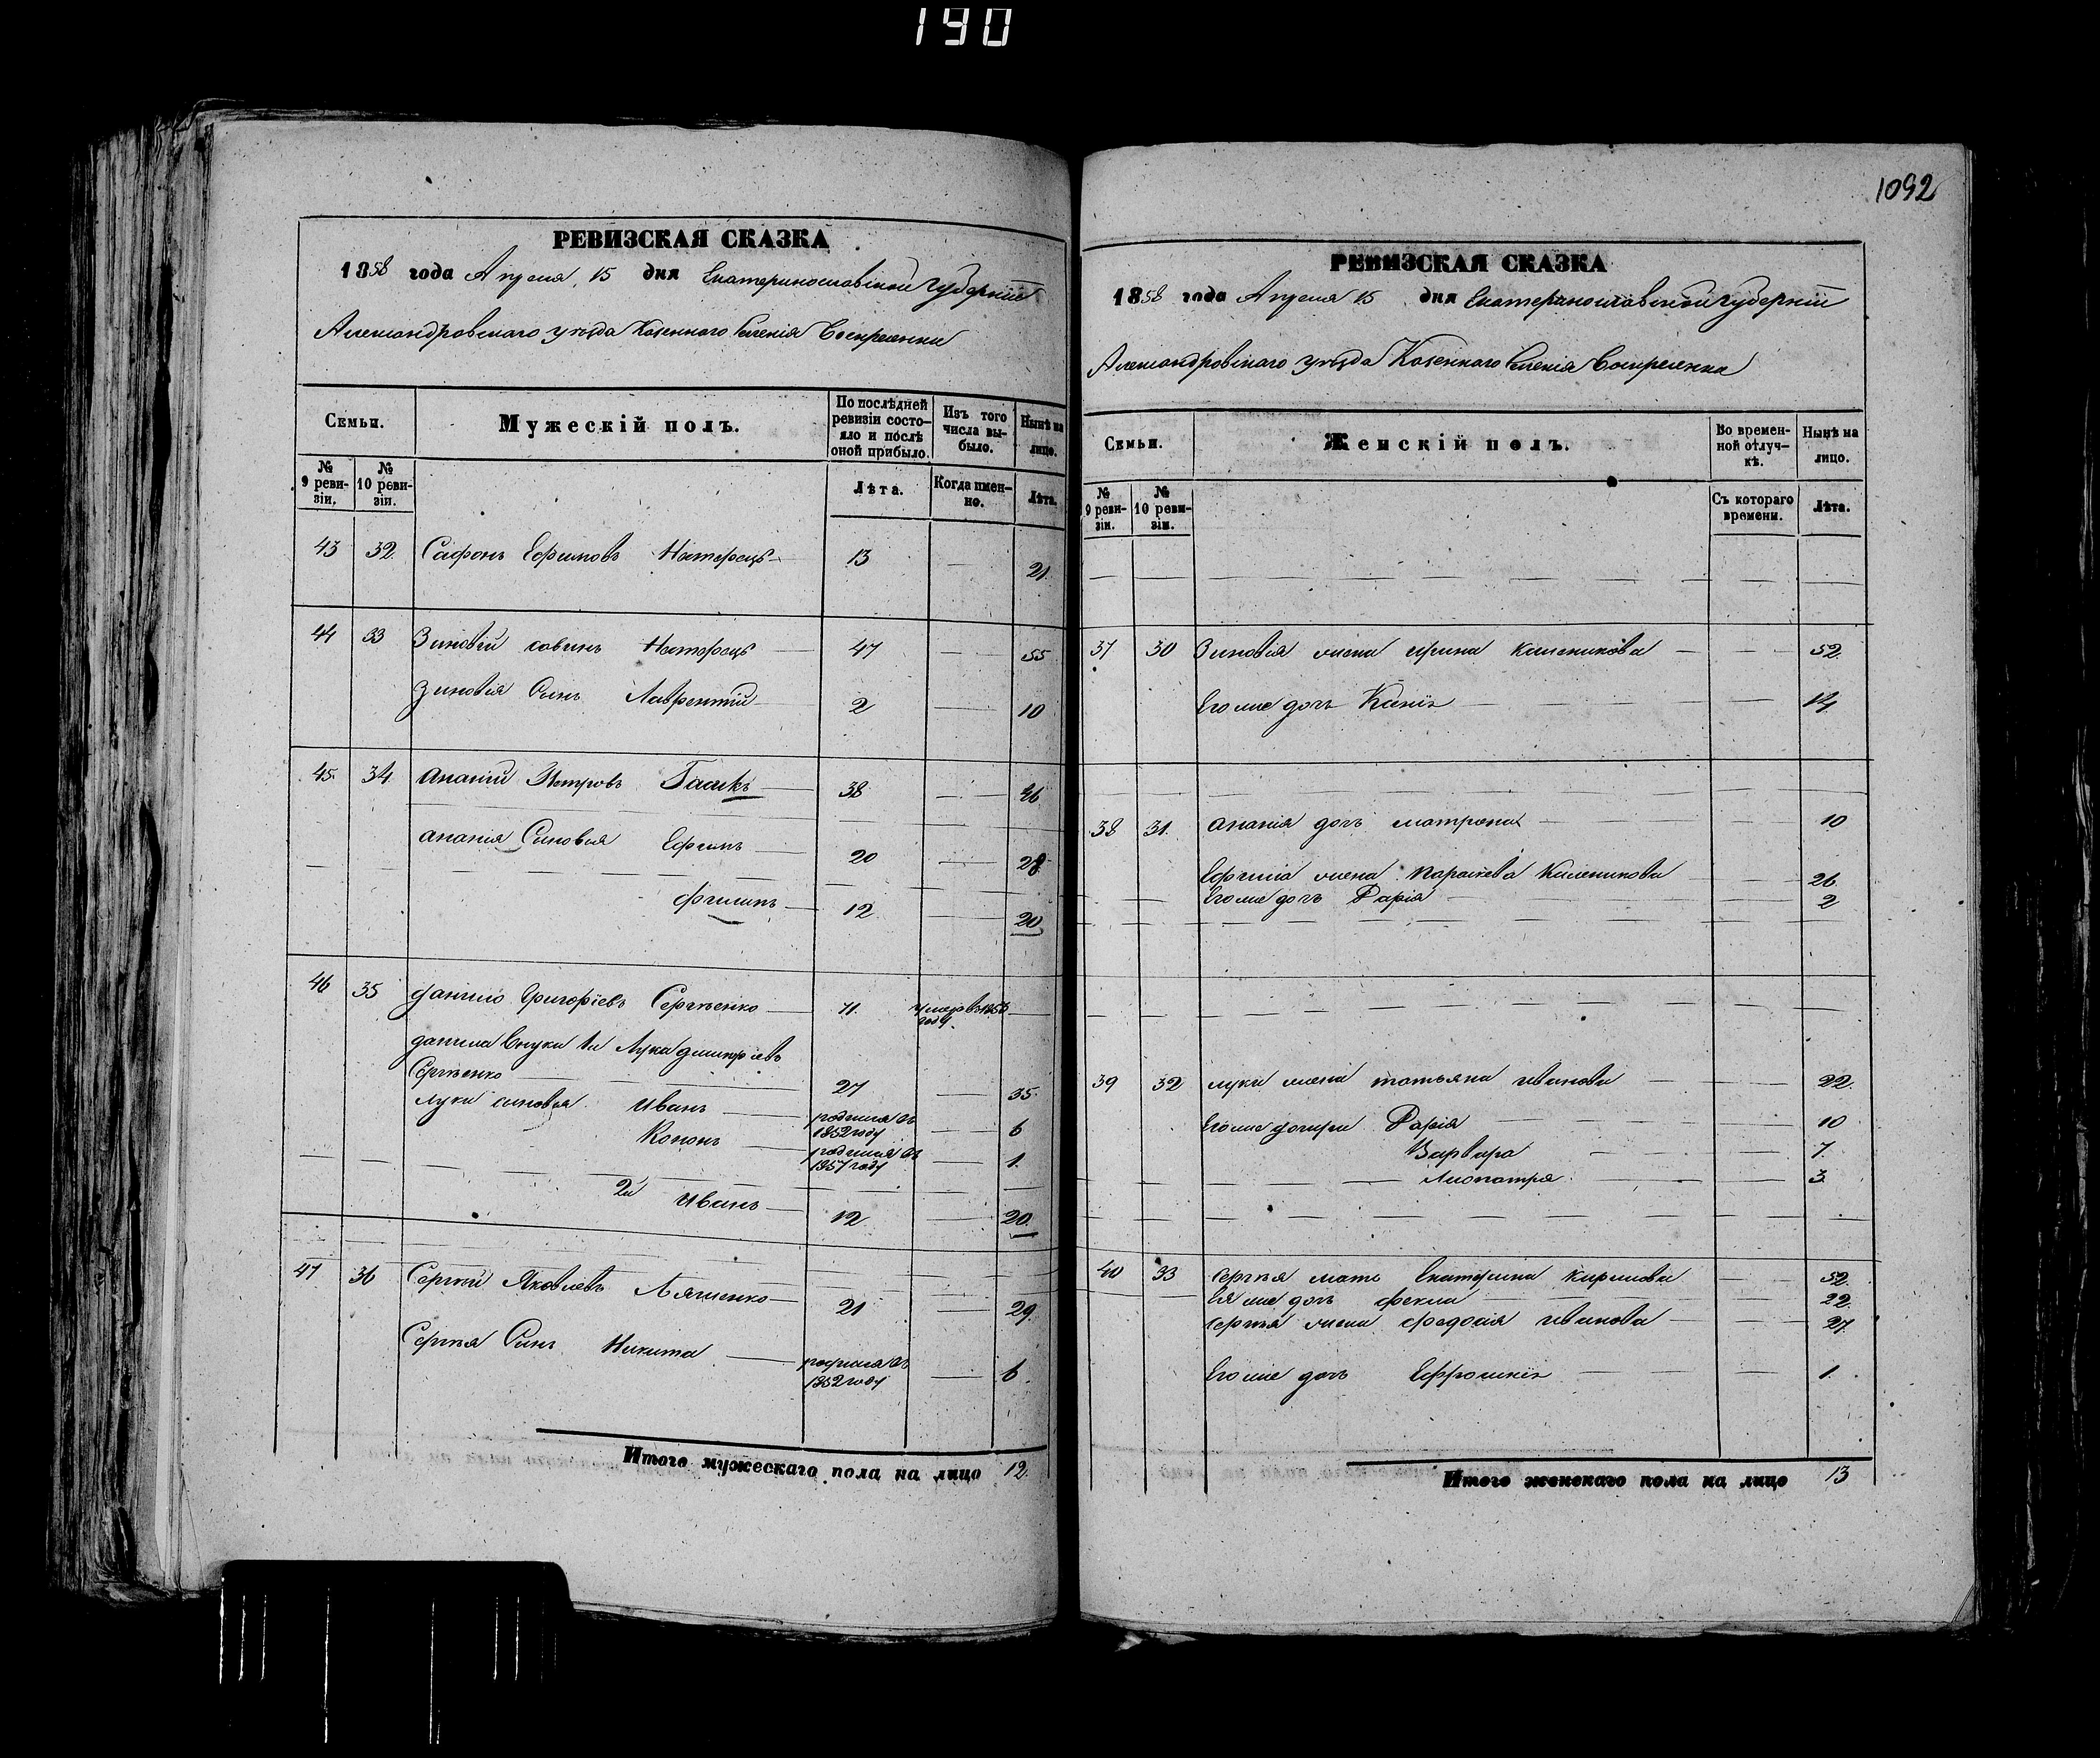 190
1092
РЕВИЗСКАЯ СКАЗКА
1858 года Апреля 15 дня Екатеринославской Губернии
Александровскаго уѣзда Казеннаго Селенія Воскресенки
Семьи.
Мужескій полъ.
По послѣдней ревизіи состояло и послѣ оной прибыло.
Изъ того числа выбыло.
Нынѣ на лицо.
№ 9 ревизіи.
№ 10 ревизіи.
Лѣта.
Когда именно.
Лѣта.
43 32. Сафонъ Ефимовъ 13 21.
44 33 Зиновій Савинъ 47 55
Зиновія Сынъ Лаврентій 2 10
45. 34. Ананій Петровъ 38 46
Ананія Сыновья Ефимъ 20 28
Филипъ 12 20
46 35 Данило Григоріевъ Сергѣенко 71. умеръ въ году.
Данила Внуки 1й Лука Дмитріевъ
Сергѣенко 27 35.
Луки сыновья Иванъ родился въ 1852 году 6
Кононъ родился въ 1857 году 1.
2й Иванъ 12 20.
47 36 Сергѣй Яковлевъ Ляшенко 21 29.
Сергѣя Сынъ Никита родился въ 1852 году 6.
Итого мужескаго пола на лицо 12.
РЕВИЗСКАЯ СКАЗКА
1858 года Апреля 15 дня Екатеринославской Губерніи
Александровскаго уѣзда Казеннаго Селенія Воскресенки
Семьи.
Женскій полъ.
Во временной отлучкѣ.
Нынѣ на лицо.
№ 9 ревизіи.
№ 10 ревизіи.
Съ котораго времени.
Лѣта.
37 30 Зиновія жена Ирина 52.
Его же дочь 14
38 31. Ананія дочь Матрона 10
Ефима жена 26
Его же дочь Дарія 2
39 32 Луки жена Татьяна Иванова 22.
Его же дочери Дарія 10
Варвара 7.
3.
40 33 Сергѣя мать Екатерина Кирилова 52
Ея же дочь Фекла 22.
Сергѣя жена Федосія Иванова 27
Его же дочь 1.
Итого женскаго пола на лицо 13